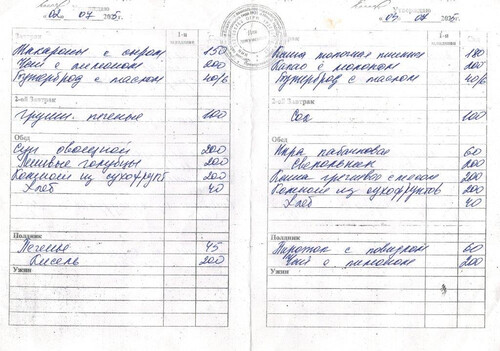 02 07 2025г.
Завтрак
1-я
Макароны с сыром 150
Чай с лимоном 200
Бутерброд с маслом 40/6
2-ой Завтрак
Груши 100
Обед
Суп овощной 200
Ленивые голубцы 200
Компот из сухофрукт 200
Хлеб 40
Полдник
Печенье 45
Кисель 200
Ужин
Утверждаю
03 07 2025г.
1-я
Каша молочная 180
Какао с молоком 200
Бутерброд с маслом 40/6
2-ой Завтрак
Сок 100
Обед
Икра кабачковая 60
Свекольник 200
Каша гречневая с мясом 200
Компот из сухофруктов 200
Хлеб 40
Полдник
Пирожок с повидлом 60
Чай с лимоном 200
Ужин